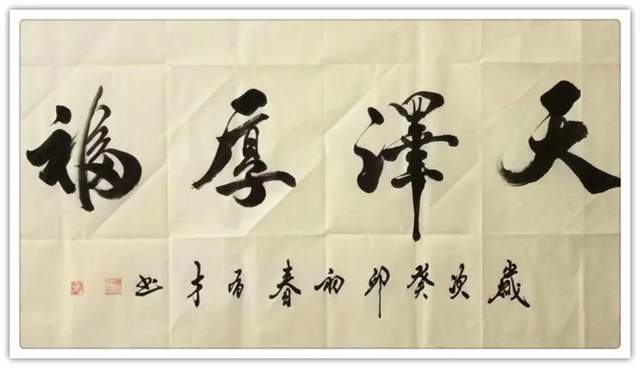 天澤厚福
歲次癸卯初春有才书